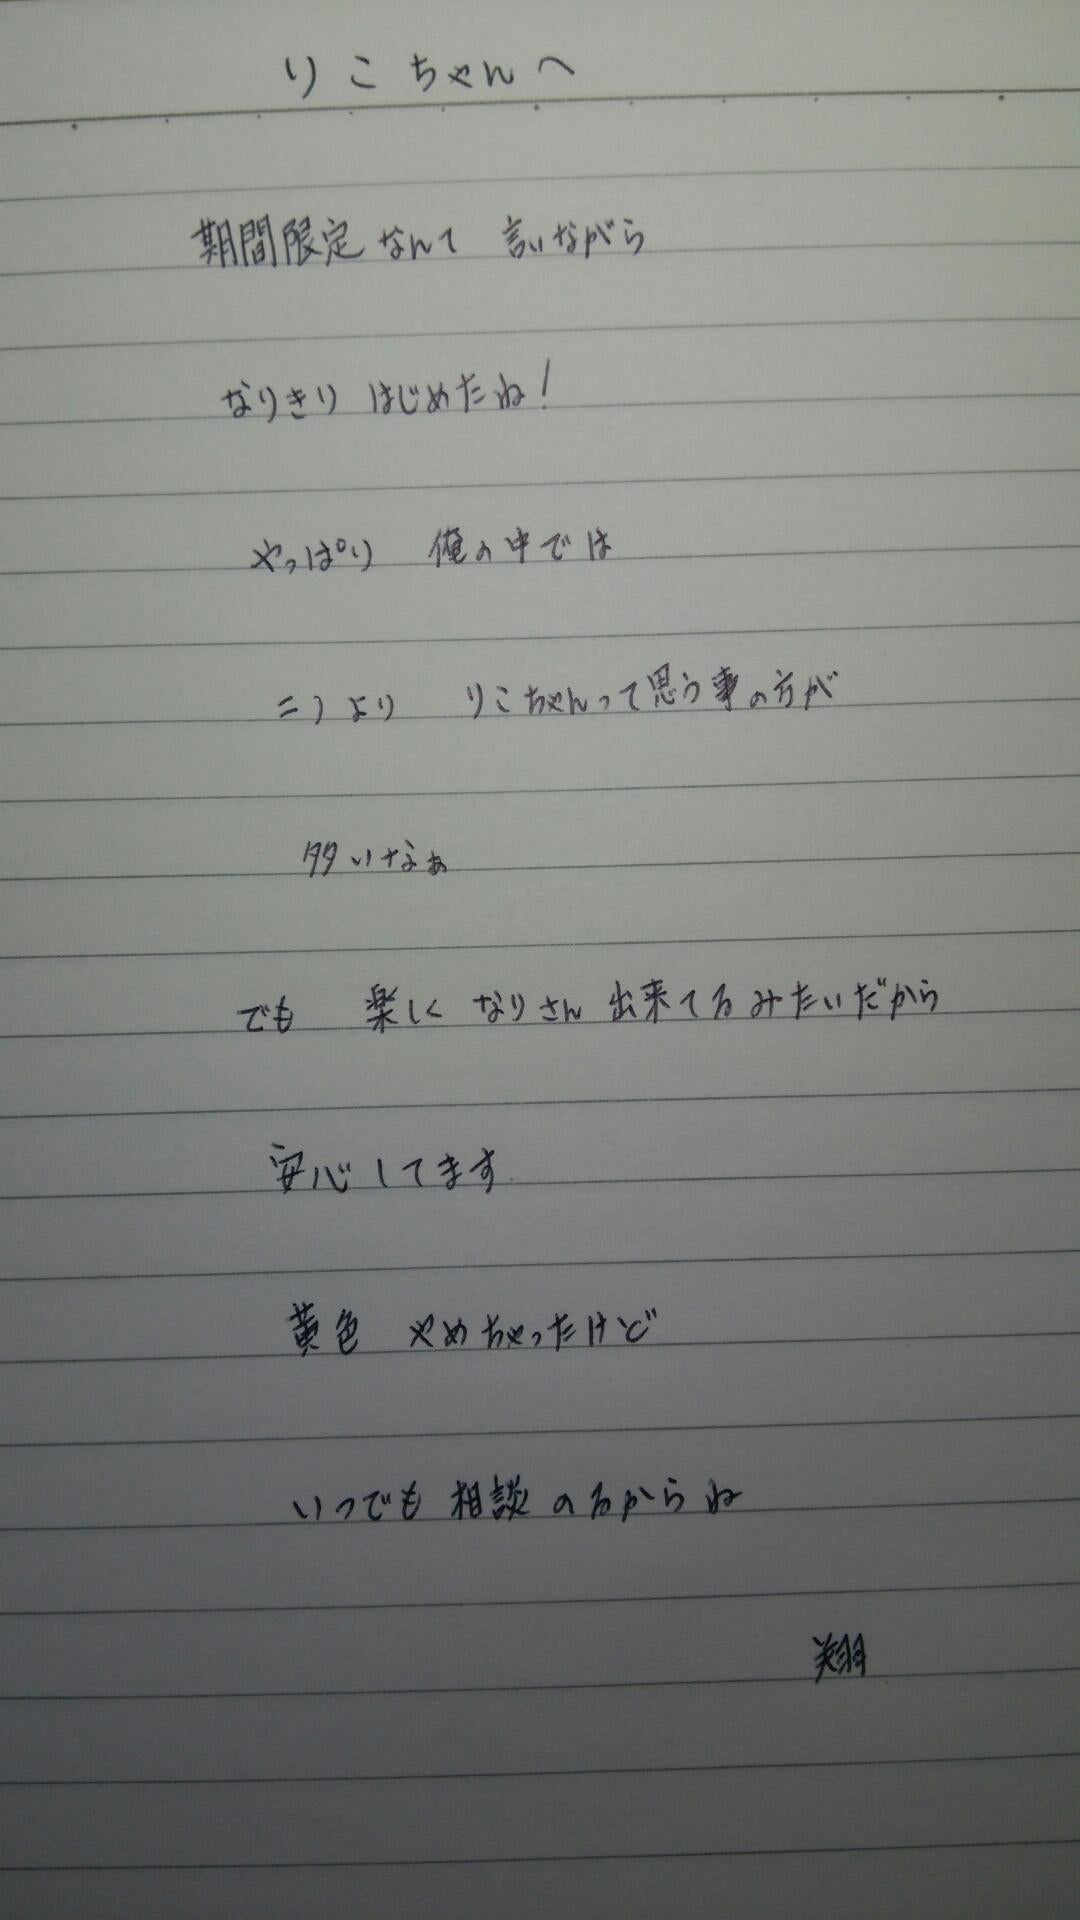 りこちゃんへ
期間限定なんて 言いながら
なりきり はじめたね!
やっぱり 俺の中では
ニノより りこちゃんって思う事の方が
多いなぁ
でも 楽しく なりさん 出来てるみたいだから
安心してます
黄色 やめちゃったけど
いつでも 相談 のるからね
翔